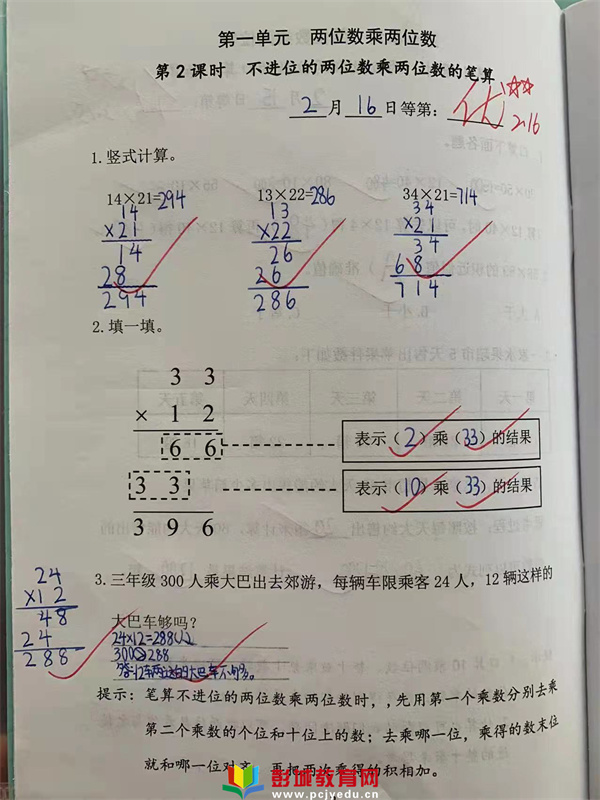 第一单元 两位数乘两位数
第2课时 不进位的两位数乘两位数的笔算
2月16日等第：优
2.16
1.竖式计算。
14×21=294 13×22=286 34×21=714
14 13 34
×21 ×22 ×21
14 26 34
28 26 68
294 286 714
2.填一填。
3 3
× 1 2
6 6 表示（2）乘（33）的结果
3 3 表示（10）乘（33）的结果
3 9 6
3.三年级300人乘大巴出去郊游，每辆车限乘客24人，12辆这样的
大巴车够吗？
24×12=288(人)
300>288
24
×12
48
24
288
提示：笔算不进位的两位数乘两位数时，，先用第一个乘数分别去乘
第二个乘数的个位和十位上的数；去乘哪一位，乘得的数末位
就和哪一位对齐，再把两次乘得的积相加。
彭城教育网
www.pcjyedu.cn